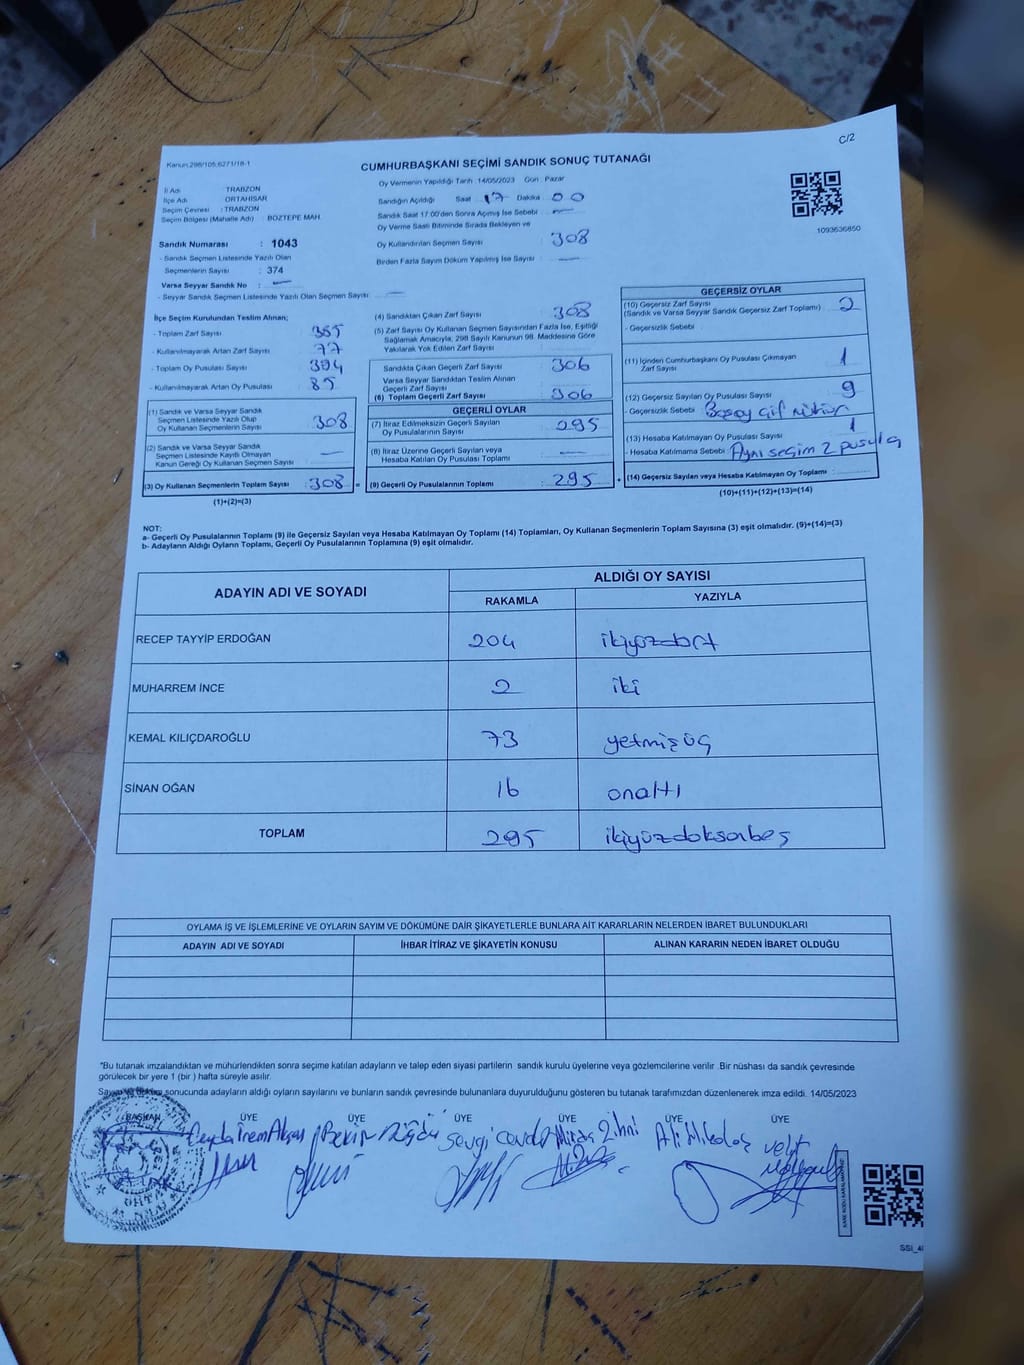 C/2
Kanun:298/105,6271/18-1
CUMHURBAŞKANI SEÇİMİ SANDIK SONUÇ TUTANAĞI
İl Adı TRABZON
İlçe Adı ORTAHİSAR
Seçim Çevresi : TRABZON
Seçim Bölgesi (Mahalle Adı) : BOZTEPE MAH.
Oy Vermenin Yapıldığı Tarih :14/05/2023 Gün : Pazar
Sandığın Açıldığı Saat 17 Dakika 00
Sandık Saat 17:00'den Sonra Açılmış İse Sebebi : —
Oy Verme Saati Bitiminde Sırada Bekleyen ve
Oy Kullandırılan Seçmen Sayısı : 308
Birden Fazla Sayım Döküm Yapılmış İse Sayısı : —
1093636850
Sandık Numarası : 1043
- Sandık Seçmen Listesinde Yazılı Olan
Seçmenlerin Sayısı : 374
Varsa Seyyar Sandık No : —
- Seyyar Sandık Seçmen Listesinde Yazılı Olan Seçmen Sayısı : —
İlçe Seçim Kurulundan Teslim Alınan;
- Toplam Zarf Sayısı : 385
- Kullanılmayarak Artan Zarf Sayısı : 77
- Toplam Oy Pusulası Sayısı : 394
- Kullanılmayarak Artan Oy Pusulası : 85
(1) Sandık ve Varsa Seyyar Sandık
Seçmen Listesinde Yazılı Olup
Oy Kullanan Seçmenlerin Sayısı : 308
(2) Sandık ve Varsa Seyyar Sandık
Seçmen Listesinde Kayıtlı Olmayan
Kanun Gereği Oy Kullanan Seçmen Sayısı : —
(3) Oy Kullanan Seçmenlerin Toplam Sayısı : 308 =
(1)+(2)=(3)
(4) Sandıktan Çıkan Zarf Sayısı : 308
(5) Zarf Sayısı Oy Kullanan Seçmen Sayısından Fazla İse, Eşitliği
Sağlamak Amacıyla; 298 Sayılı Kanunun 98. Maddesine Göre
Yakılarak Yok Edilen Zarf Sayısı
Sandıkta Çıkan Geçerli Zarf Sayısı : 306
Varsa Seyyar Sandıktan Teslim Alınan
Geçerli Zarf Sayısı
(6) Toplam Geçerli Zarf Sayısı : 306
GEÇERLİ OYLAR
(7) İtiraz Edilmeksizin Geçerli Sayılan
Oy Pusulalarının Sayısı : 295
(8) İtiraz Üzerine Geçerli Sayılan veya
Hesaba Katılan Oy Pusulası Toplamı : —
(9) Geçerli Oy Pusulalarının Toplamı : 295 +
GEÇERSİZ OYLAR
(10) Geçersiz Zarf Sayısı
(Sandık ve Varsa Seyyar Sandık Geçersiz Zarf Toplamı) : 2
- Geçersizlik Sebebi :
(11) İçinden Cumhurbaşkanı Oy Pusulası Çıkmayan
Zarf Sayısı : 1
(12) Geçersiz Sayılan Oy Pusulası Sayısı : 9
- Geçersizlik Sebebi : çif
(13) Hesaba Katılmayan Oy Pusulası Sayısı : 1
- Hesaba Katılmama Sebebi : Aynı seçim 2 pusula
(14) Geçersiz Sayılan veya Hesaba Katılmayan Oy Toplamı :
(10)+(11)+(12)+(13)=(14)
NOT:
a- Geçerli Oy Pusulalarının Toplamı (9) ile Geçersiz Sayılan veya Hesaba Katılmayan Oy Toplamı (14) Toplamları, Oy Kullanan Seçmenlerin Toplam Sayısına (3) eşit olmalıdır. (9)+(14)=(3)
b- Adayların Aldığı Oyların Toplamı, Geçerli Oy Pusulalarının Toplamına (9) eşit olmalıdır.
ADAYIN ADI VE SOYADI ALDIĞI OY SAYISI
RAKAMLA YAZIYLA
RECEP TAYYİP ERDOĞAN 204 ikiyüzdört
MUHARREM İNCE 2 iki
KEMAL KILIÇDAROĞLU 73 yetmişüç
SİNAN OĞAN 16 onaltı
TOPLAM 295 ikiyüzdoksanbeş
OYLAMA İŞ VE İŞLEMLERİNE VE OYLARIN SAYIM VE DÖKÜMÜNE DAİR ŞİKAYETLERLE BUNLARA AİT KARARLARIN NELERDEN İBARET BULUNDUKLARI
ADAYIN ADI VE SOYADI İHBAR İTİRAZ VE ŞİKAYETİN KONUSU ALINAN KARARIN NEDEN İBARET OLDUĞU
*Bu tutanak imzalandıktan ve mühürlendikten sonra seçime katılan adayların ve talep eden siyasi partilerin sandık kurulu üyelerine veya gözlemcilerine verilir .Bir nüshası da sandık çevresinde
görülecek bir yere 1 (bir ) hafta süreyle asılır.
sonucunda adayların aldığı oyların sayılarını ve bunların sandık çevresinde bulunanlara duyurulduğunu gösteren bu tutanak tarafımızdan düzenlenerek imza edildi. 14/05/2023
BAŞKAN ÜYE ÜYE ÜYE ÜYE ÜYE ÜYE
Ceyda İrem Bekir Sevgi Ali